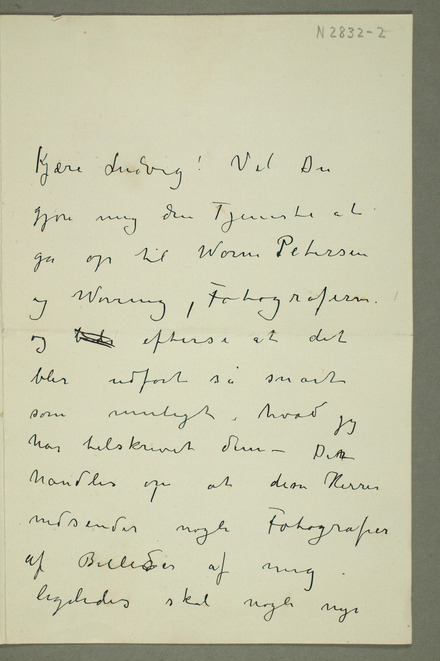 N 2832-2
Kjære Ludvig! Vil Du
gjøre mig den Tjeneste at
gå op til Worm Petersen
og Worning, Fotografern.
og efterse at det
blir udført så snart
som muligt, hvad jeg
har tilskrivet dem – Det
handles op at disse Herrer
nedsender nogle Fotografier
af Billeder af mig.
ligeledes skal nogle nye